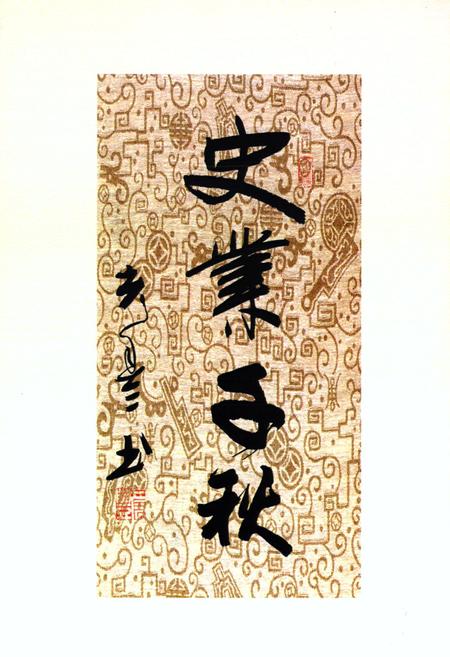 史業千秋